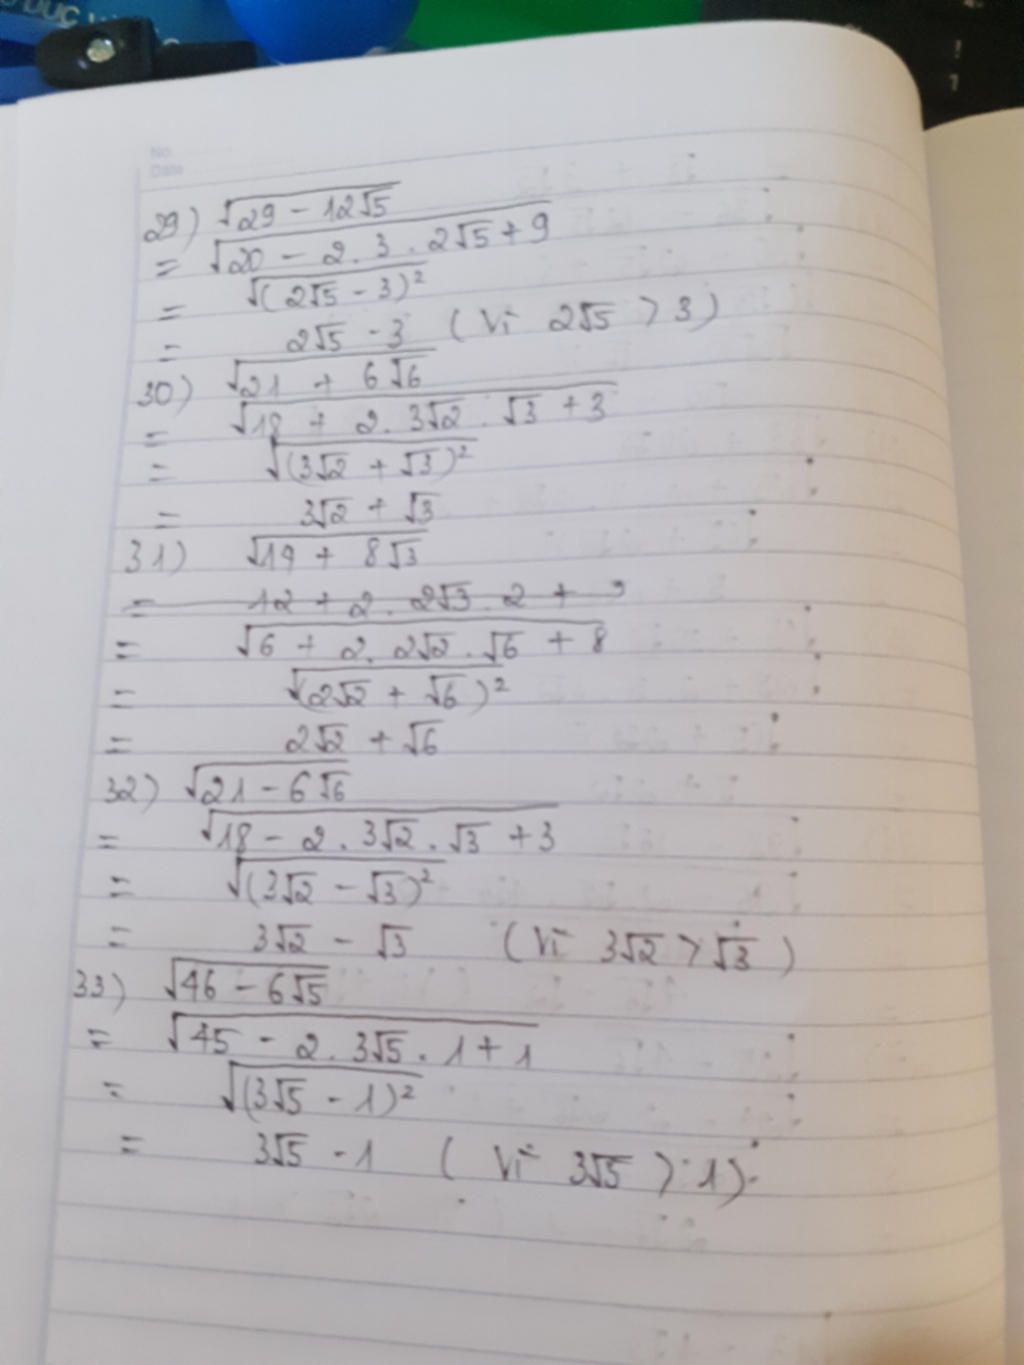 No.
Date
29) √(29 - 12√5)
= √(20 - 2.3.2√5 + 9)
= √((2√5 - 3)²)
= 2√5 - 3 (Vì 2√5 > 3)
30) √(21 + 6√6)
= √(18 + 2.3√2.√3 + 3)
= √((3√2 + √3)²)
= 3√2 + √3
31) √(19 + 8√3)
= 12 + 2.2√3.2 +
= √(6 + 2.2√2.√6 + 8)
= √((2√2 + √6)²)
= 2√2 + √6
32) √(21 - 6√6)
= √(18 - 2.3√2.√3 + 3)
= √((3√2 - √3)²)
= 3√2 - √3 (Vì 3√2 > √3)
33) √(46 - 6√5)
= √(45 - 2.3√5.1 + 1)
= √((3√5 - 1)²)
= 3√5 - 1 (Vì 3√5 > 1).